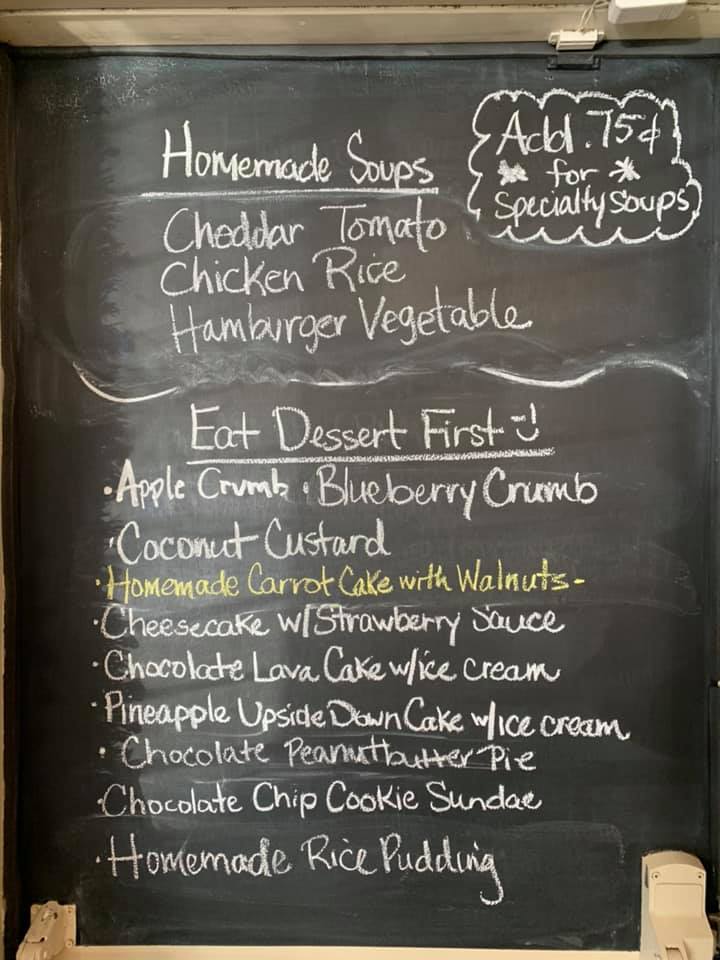 Homemade Soups
Add .75¢
* for *
Specialty Soups
Cheddar Tomato
Chicken Rice
Hamburger Vegetable
Eat Dessert First :)
• Apple Crumb • Blueberry Crumb
• Coconut Custard
• Homemade Carrot Cake with Walnuts -
• Cheesecake w/ Strawberry Sauce
• Chocolate Lava Cake w/ice cream
• Pineapple Upside Down Cake w/ice cream
• Chocolate Peanutbutter Pie
• Chocolate Chip Cookie Sundae
• Homemade Rice Pudding